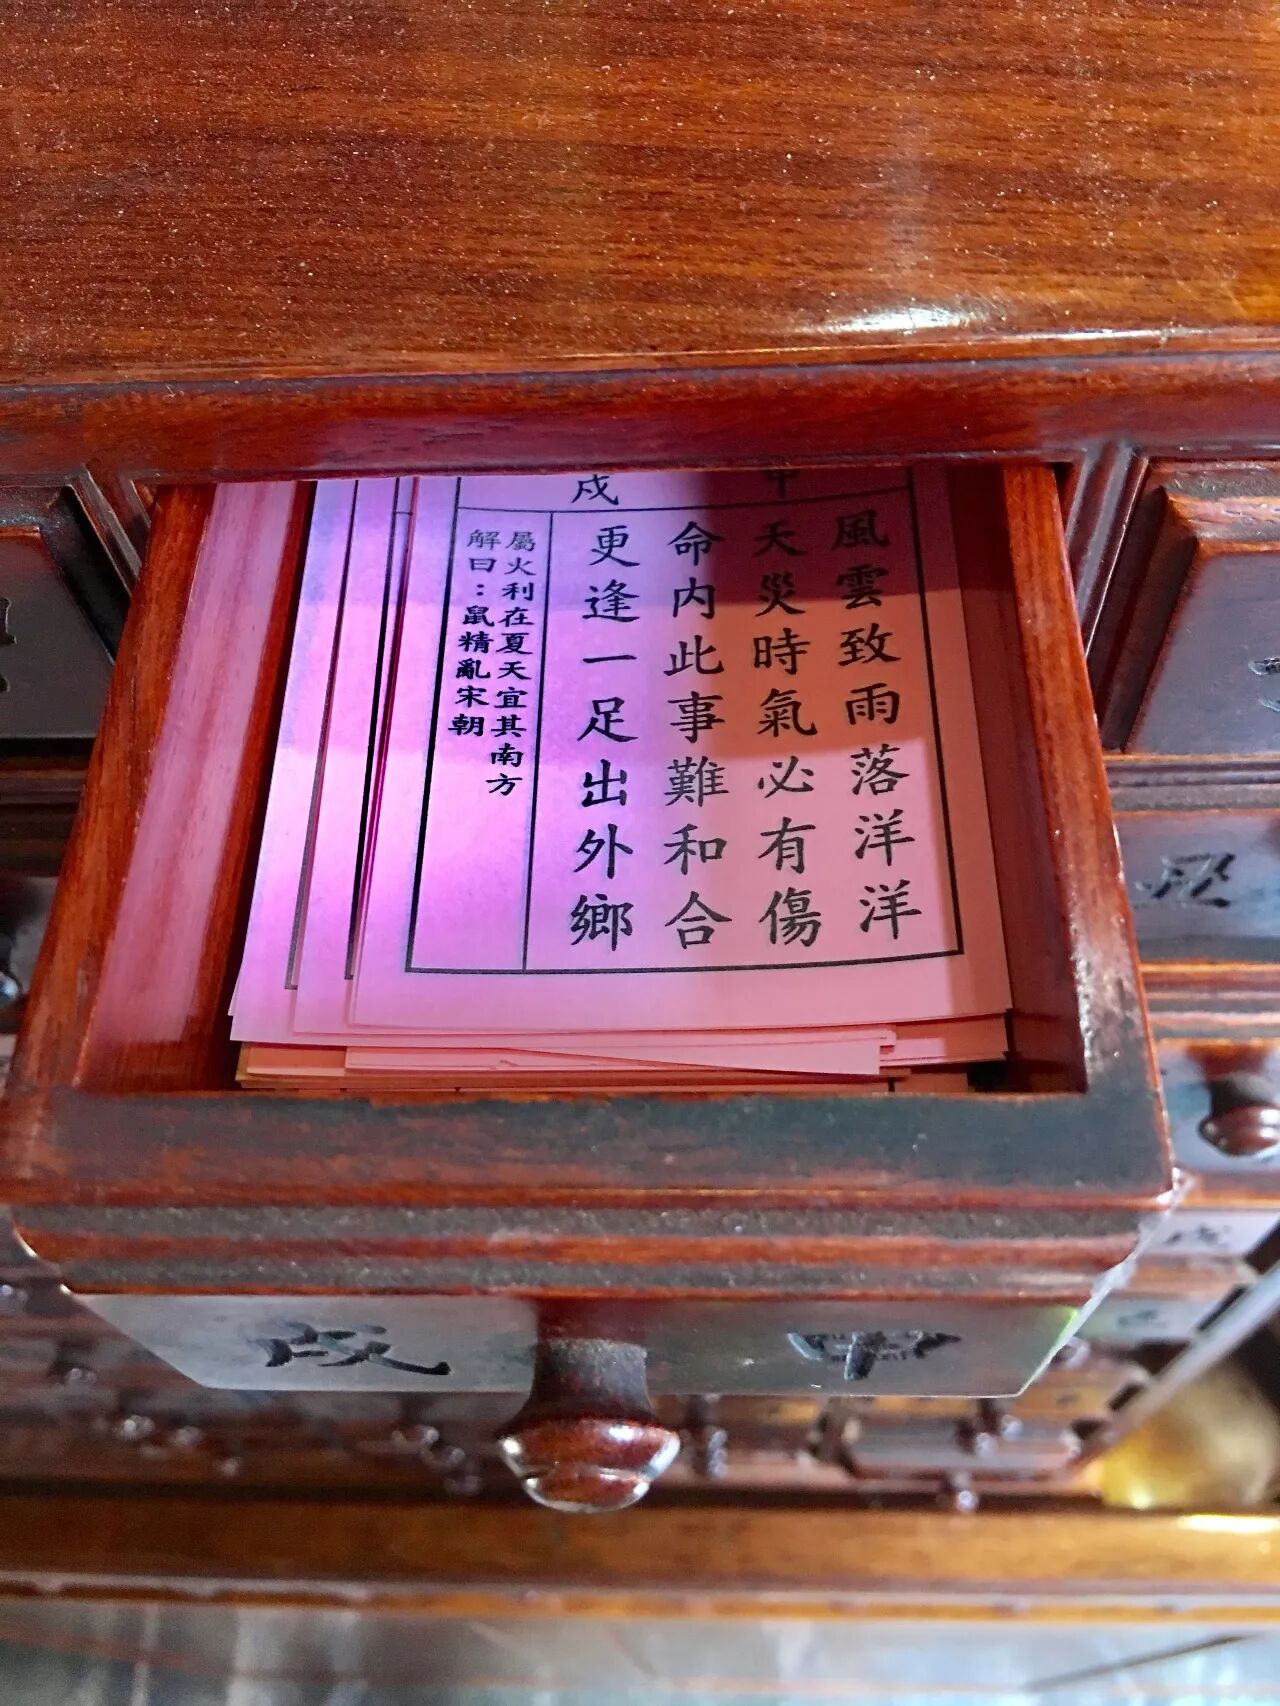 甲 戍
風雲致雨落洋洋
天災時氣必有傷
命內此事難和合
更逢一足出外鄉
屬火利在夏天宜其南方
解曰：鼠精亂宋朝
甲 戍